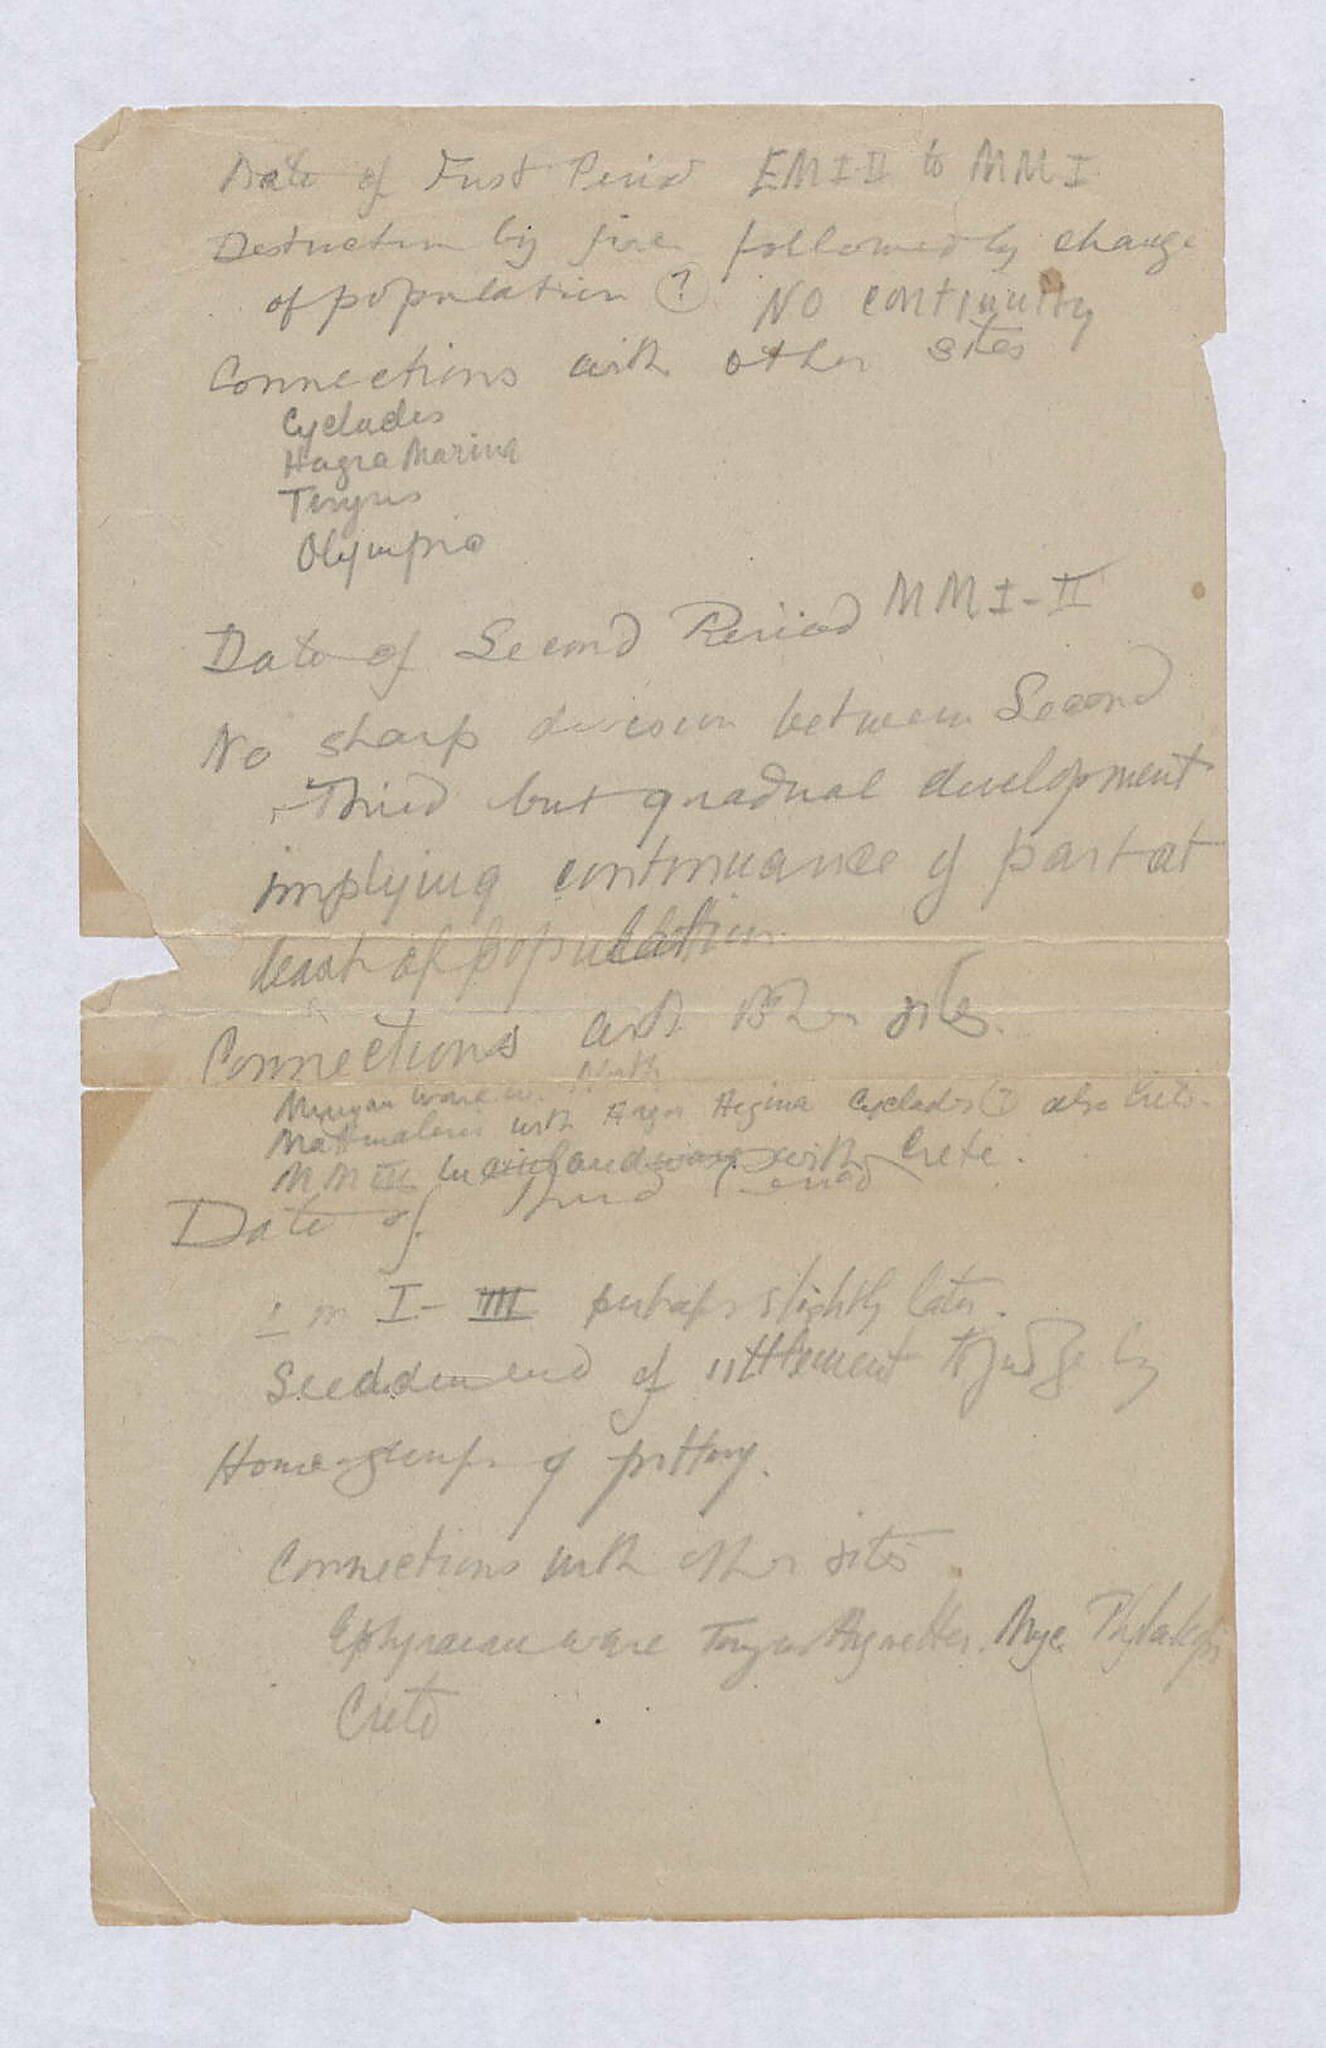 Date of First Period EM I-II to MM I
Destruction by fire followed by change
of population ? No continuity
Connections with other sites
Cyclades
Hagia Marina
Tiryns
Olympia
Date of Second Period MM I-II
No sharp division between Second
Third but gradual development
implying continuance of part at
least of population
Connections with other sites.
Minyan ware North
Mattmalerei with Aegina Cyclades ? also Crete.
MM III with Crete.
Date of Third Period
I - III perhaps slightly later.
Sudden end of settlement to judge by
Home groups of pottery.
Connections with other sites
Ephyraean ware Tiryns Myc Phylakopi
Crete